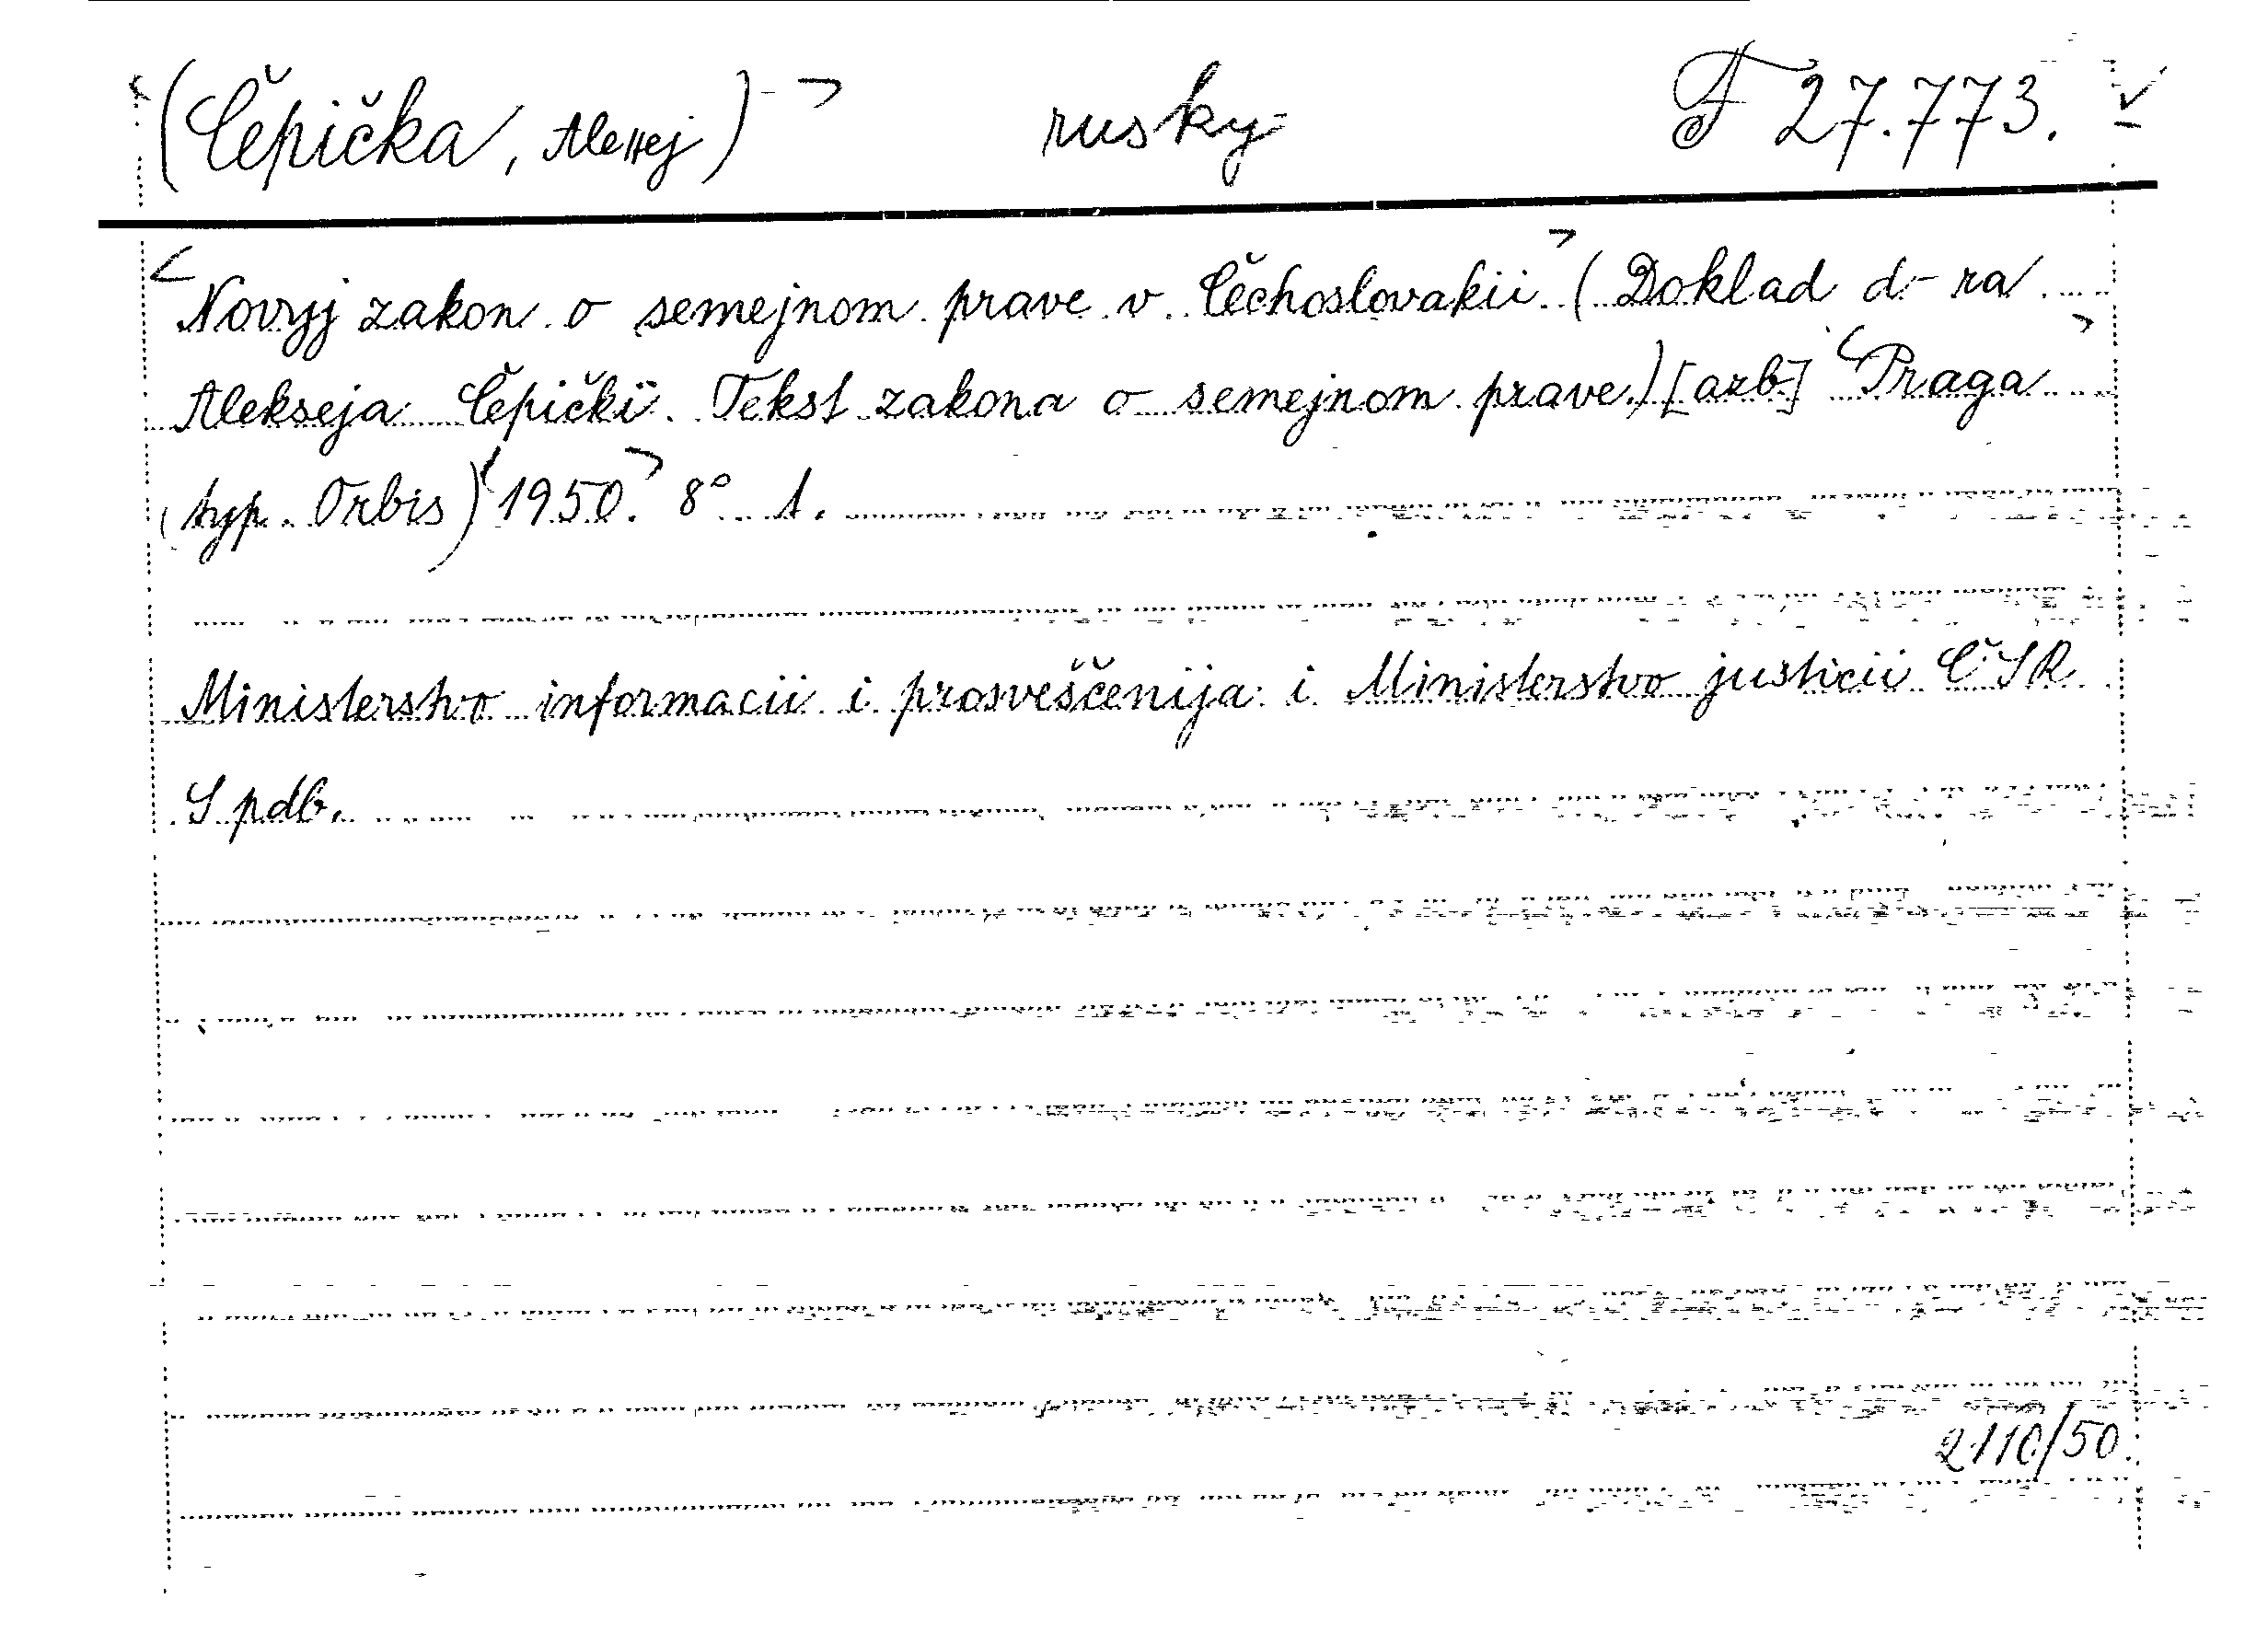 (Čepička, Alexej) rusky F 27.773.
Novyj zakon o semejnom prave v Čechoslovakii (Doklad d-ra
Alekseja Čepički. Tekst zakona o semejnom prave.) [azb] Praga
(typ. Orbis) 1950. 8° 1.
Ministerstvo informacii i prosveščenija i Ministerstvo justicii ČSR
S pdb.
2110/50.